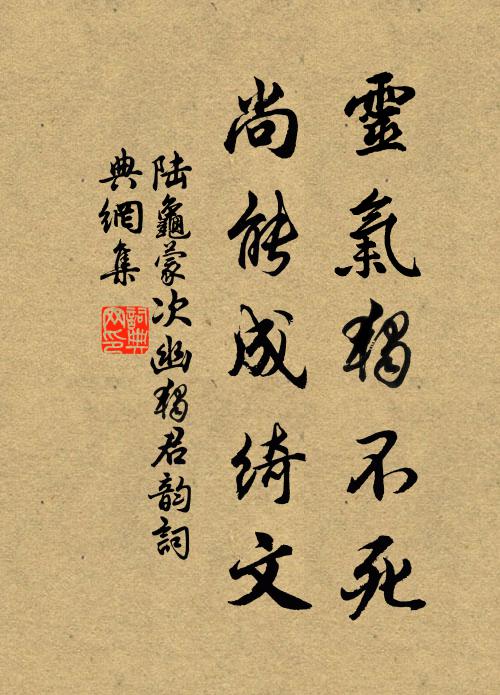 靈氣獨不死
尚能成綺文
陸龜蒙次幽獨君韵詞
典網集
詞典网印